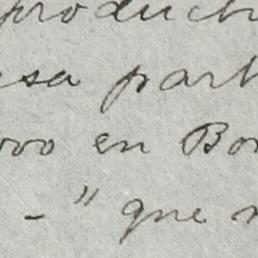 produch
esa part
ovo en Bo
- " que